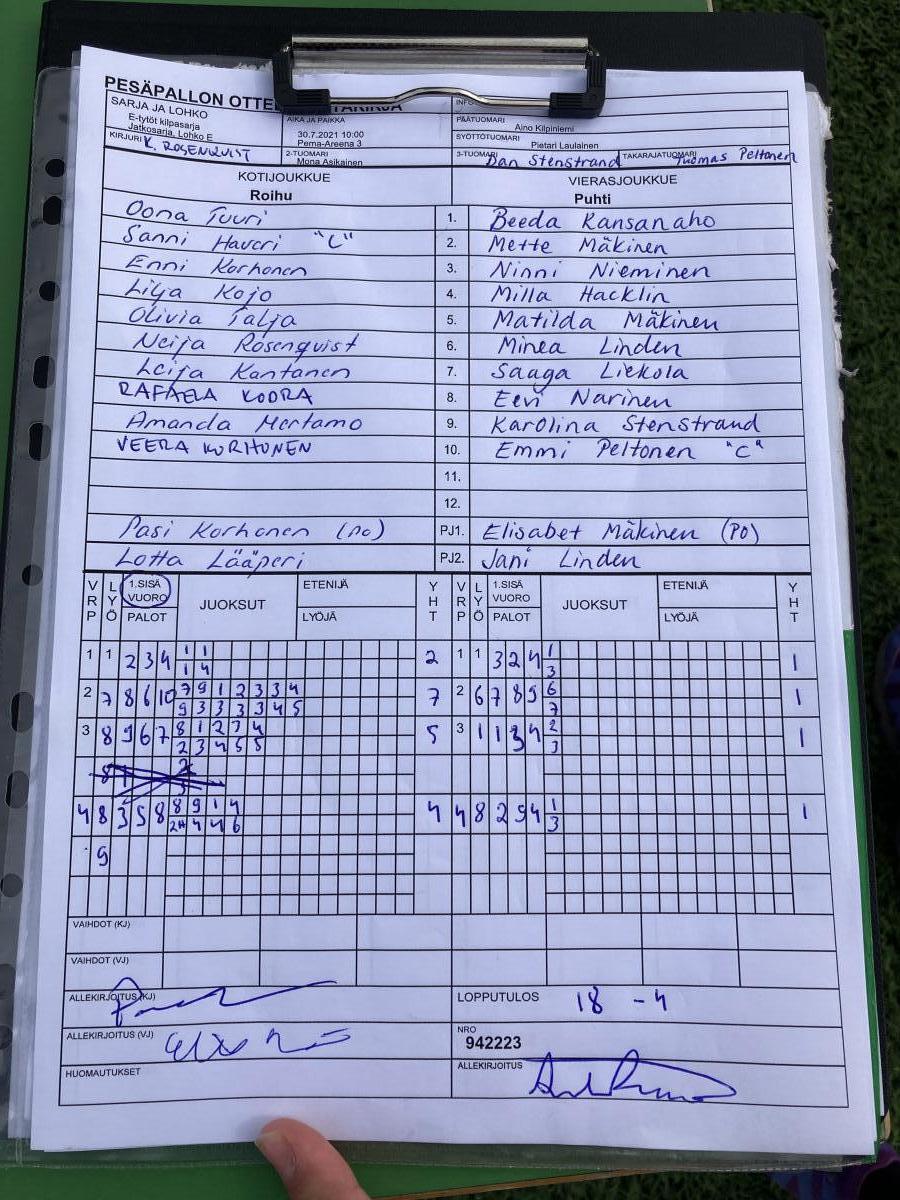 PESÄPALLON OTTE
SARJA JA LOHKO
E-tytöt kilpasarja
Jatkosarja, Lohko E
AIKA JA PAIKKA
30.7.2021 10:00
Pema-Areena 3
INFO
PÄÄTUOMARI
Aino Kilpiniemi
SYÖTTÖTUOMARI
Pietari Laulainen
KIRJURI K. ROSENQVIST
2-TUOMARI
Mona Asikainen
3-TUOMARI Dan Stenstrand TAKARAJATUOMARI Tuomas Peltonen
KOTIJOUKKUE VIERASJOUKKUE
Roihu Puhti
Oona Tuuri 1. Beeda Kansanaho
Sanni Haveri "C" 2. Mette Mäkinen
Enni Korhonen 3. Ninni Nieminen
Lilja Kojo 4. Milla Hacklin
Olivia Talja 5. Matilda Mäkinen
Neija Rosenquist 6. Minea Linden
Leija Kantanen 7. Saaga Liekola
RAFAELA KODRA 8. Eevi Narinen
Amanda Mertamo 9. Karolina Stenstrand
VEERA KORHONEN 10. Emmi Peltonen "C"
11.
12.
Pasi Korhonen (PO) PJ1. Elisabet Mäkinen (PO)
Lotta Lääperi PJ2. Jani Linden
VRP LYÖ 1.SISÄ VUORO PALOT JUOKSUT ETENIJÄ LYÖJÄ YHT VRP LYÖ 1.SISÄ VUORO PALOT JUOKSUT ETENIJÄ LYÖJÄ YHT
1 1 2 3 4 1 1 2 1 1 3 2 4 1 1
1 4 3
2 7 8 6 10 7 9 1 2 3 3 4 7 2 6 7 8 9 6 1
9 3 3 3 3 4 5 7
3 8 9 6 7 8 1 2 3 4 5 3 1 1 3 4 2 1
2 3 4 5 5 3
4 8 3 5 8 8 9 1 4 4 4 8 2 9 4 1 1
4 4 6 3
9
VAIHDOT (KJ)
VAIHDOT (VJ)
ALLEKIRJOITUS (KJ) LOPPUTULOS 18 - 4
ALLEKIRJOITUS (VJ) NRO
942223
HUOMAUTUKSET ALLEKIRJOITUS